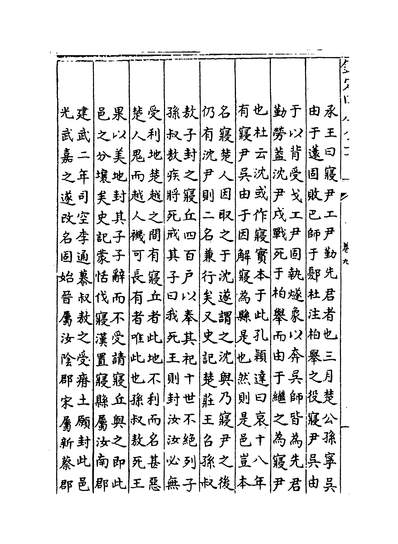 承王曰寢尹工尹勤先君者也三月楚公孫寧吳
由于薳固敗巴師于鄾杜注柏舉之役寢尹吳由
于以背受戈工尹固執燧象以奔吳師皆為先君
勤勞蓋沈尹戌戰死于柏舉而由于繼之為寢尹
也杜云沈或作寢寢本于此孔穎達曰哀十八年
有寢尹吳由于因解寢為縣是也然則是邑豈本
名寢楚人因取之于沈遂謂之沈與乃寢尹之後
仍有沈尹則二名兼行矣又史記楚莊王召孫叔
敖子封之寢丘四百户以奉其祀十世不絕列子
孫叔敖疾將死戒其子曰我死王則封汝汝必無
受利地楚越之間有寢丘者此地不利而名甚惡
楚人鬼而越人禨可長有者唯此也孫叔敖死王
果以美地封其子子辭而不受請寢丘與之即此
邑之分壤矣史記蒙恬伐寢漢置寢縣屬汝南郡
建武二年司空李通慕叔敖之受瘠土願封此邑
光武嘉之遂改名固始晉屬汝陰郡宋屬新蔡郡
卷九